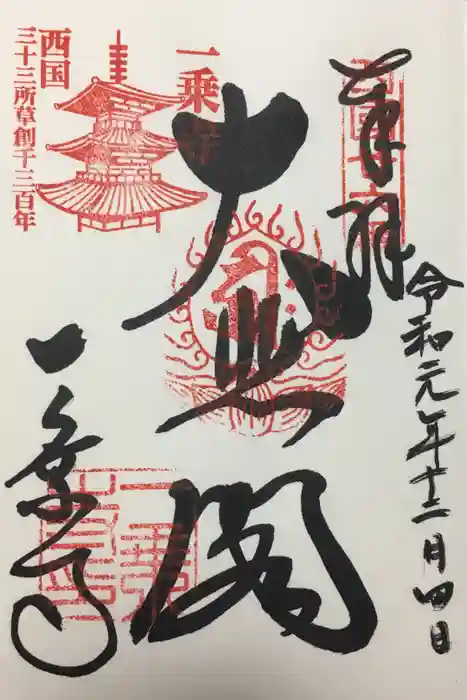 奉拝
令和元年十二月四日
大悲閣
一乗寺
一乗寺
西国
三十三所草創千三百年